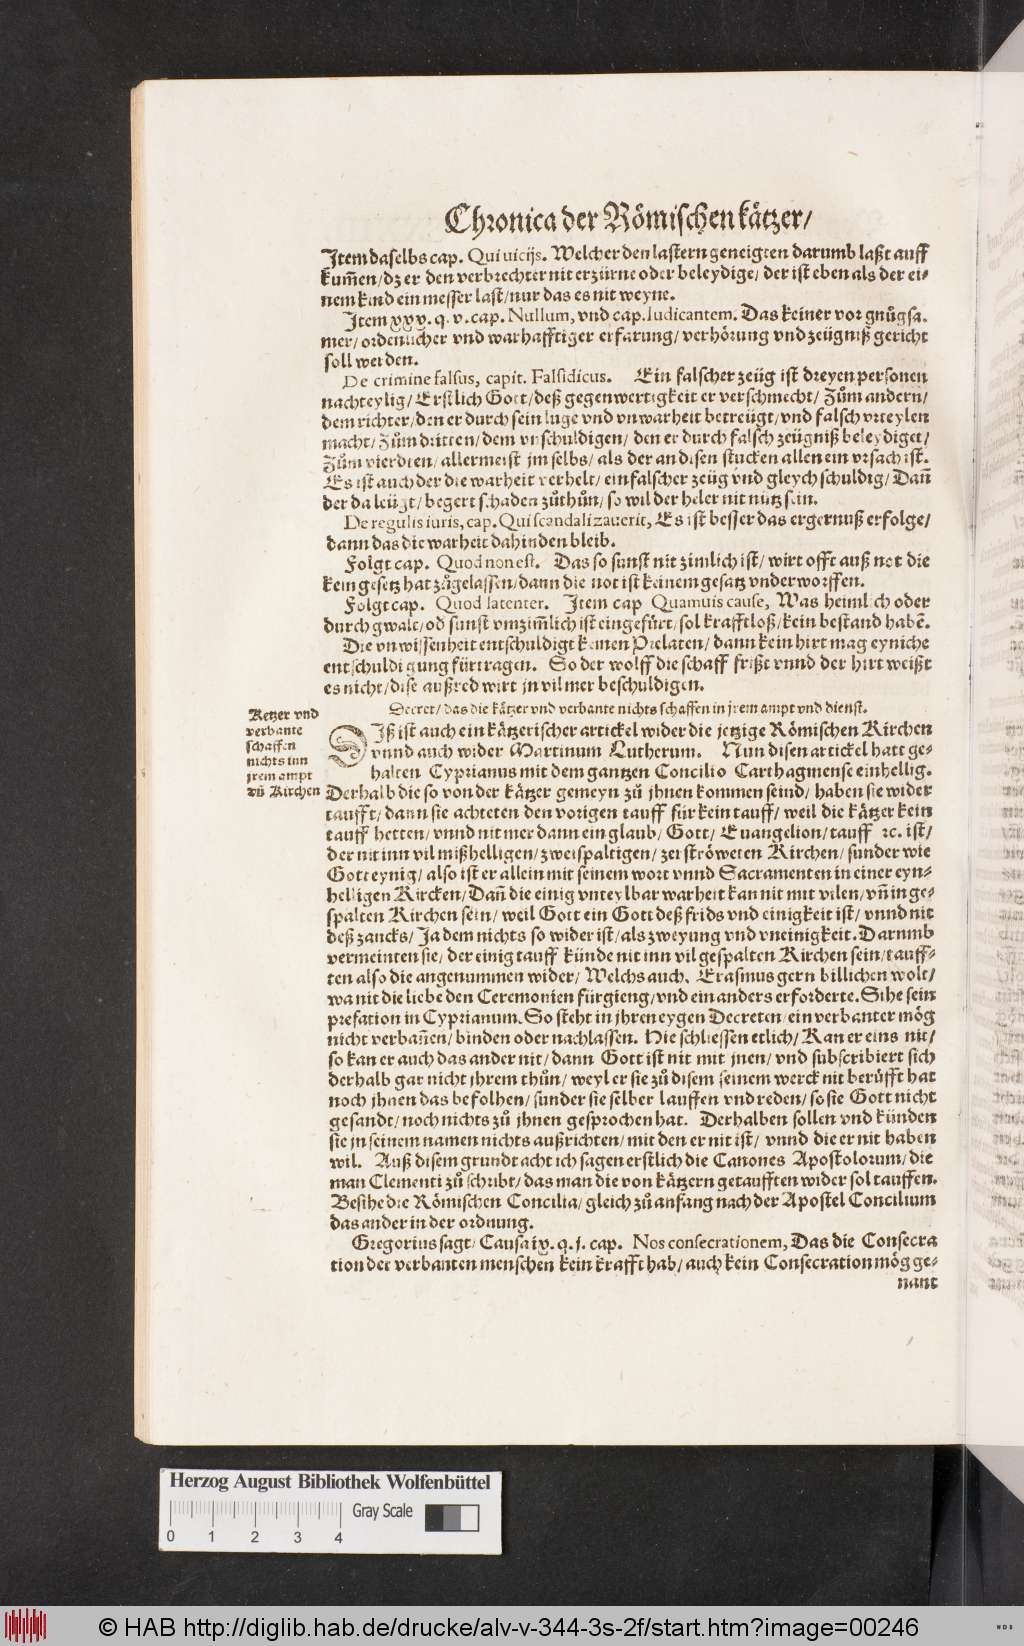 Chronica der Römischen kätzer/
Item daselbs cap. Qui vicijs. Welcher den lastern geneigten darumb laßt auff
kum̃en/ dz er den verbrechter nit erzürne oder beleydige/ der ist eben als der ei-
nem kind ein messer last/ nur das es nit weyne.
Item xxx. q. v. cap. Nullum, vnd cap. Iudicantem. Das keiner vor gnůgsa.
mer/ ordenlicher vnd warhafftiger erfarung/ verhörung vnd zeügniß gericht
soll werden.
De crimine falsus, capit. Falsidicus. Ein falscher zeüg ist dreyen personen
nachteylig/ Erstlich Gott/ deß gegenwertigkeit er verschmecht/ Zům andern/
dem richter/ den er durch sein luge vnd vnwarheit betreügt/ vnd falsch vrteylen
macht/ Zům dritten/ dem vnschuldigen/ den er durch falsch zeügniß beleydiget/
Zům vierdten/ allermeist jm selbs/ als der an disen stucken allen ein vrsach ist.
Es ist auch der die warheit verhelt/ ein falscher zeüg vnd gleych schuldig/ Dañ
der da leügt/ begert schaden zůthůn/ so wil der heler nit nutz sein.
De regulis iuris, cap. Qui scandalizauerit, Es ist besser das ergernuß erfolge/
dann das die warheit dahinden bleib.
Folgt cap. Quod non est. Das so sunst nit zimlich ist/ wirt offt auß not die
kein gesetz hat zůgelassen/ dann die not ist keinem gesatz vnderworffen.
Folgt cap. Quod latenter. Item cap Quamuis cause, Was heimlich oder
durch gwalt/ od sunst vnzim̃lich ist eingefürt/ sol krafftloß/ kein bestand habẽ.
Die vnwissenheit entschuldigt keinen Prelaten/ dann kein hirt mag eyniche
entschuldigung fürtragen. So der wolff die schaff frißt vnnd der hirt weißt
es nicht/ dise außred wirt jn vil mer beschuldigen.
Decret/ das die kätzer vnd verbante nichts schaffen in jrem ampt vnd dienst.
Ketzer vnd
verbante
schaffen
nichts inn
jrem ampt
vñ Kirchen
Diß ist auch ein kätzerischer artickel wider die jetzige Römischen Kirchen
vnnd auch wider Martinum Lutherum. Nun disen artickel hatt ge-
halten Cyprianus mit dem gantzen Concilio Carthaginense einhellig.
Derhalb die so von der kätzer gemeyn zů jhnen kommen seind/ haben sie wider
taufft/ dann sie achteten den vorigen tauff für kein tauff/ weil die kätzer kein
tauff hetten/ vnnd nit mer dann ein glaub/ Gott/ Euangelion/ tauff ꝛc. ist/
der nit inn vil mißhelligen/ zweispaltigen/ zerströweten Kirchen/ sunder wie
Gott eynig/ also ist er allein mit seinem wort vnnd Sacramenten in einer eyn-
helligen Kircken/ Dañ die einig vnteylbar warheit kan nit mit vilen/ vñ in ge-
spalten Kirchen sein/ weil Gott ein Gott deß frids vnd einigkeit ist/ vnnd nit
deß zancks/ Ja dem nichts so wider ist/ als zweyung vnd vneinigkeit. Darumb
vermeinten sie/ der einig tauff künde nit inn vil gespalten Kirchen sein/ tauff-
ten also die angenummen wider/ Welchs auch. Erasmus gern billichen wolt/
wa nit die liebe den Ceremonien fürgieng/ vnd ein anders erforderte. Sihe sein
prefation in Cyprianum. So steht in jhren eygen Decreten/ ein verbanter mög
nicht verbañen/ binden oder nachlassen. Hie schliessen etlich/ Kan er eins nit/
so kan er auch das ander nit/ dann Gott ist nit mit jnen/ vnd subscribiert sich
derhalb gar nicht jhrem thůn/ weyl er sie zů disem seinem werck nit berüfft hat
noch jhnen das befolhen/ sunder sie selber lauffen vnd reden/ so sie Gott nicht
gesandt/ noch nichts zů jhnen gesprochen hat. Derhalben sollen vnd künden
sie jn seinem namen nichts außrichten/ mit den er nit ist/ vnnd die er nit haben
wil. Auß disem grundt acht ich sagen erstlich die Canones Apostolorum/ die
man Clementi zů schribt/ das man die von kätzern getaufften wider sol tauffen.
Besihe die Römischen Concilia/ gleich zů anfang nach der Apostel Concilium
das ander in der ordnung.
Gregorius sagt/ Causa ix. q. j. cap. Nos consecrationem, Das die Consecra
tion der verbanten menschen kein krafft hab/ auch kein Consecration mög ge-
nant
Herzog August Bibliothek Wolfenbüttel
Gray Scale
0 1 2 3 4
© HAB http://diglib.hab.de/drucke/alv-v-344-3s-2f/start.htm?image=00246